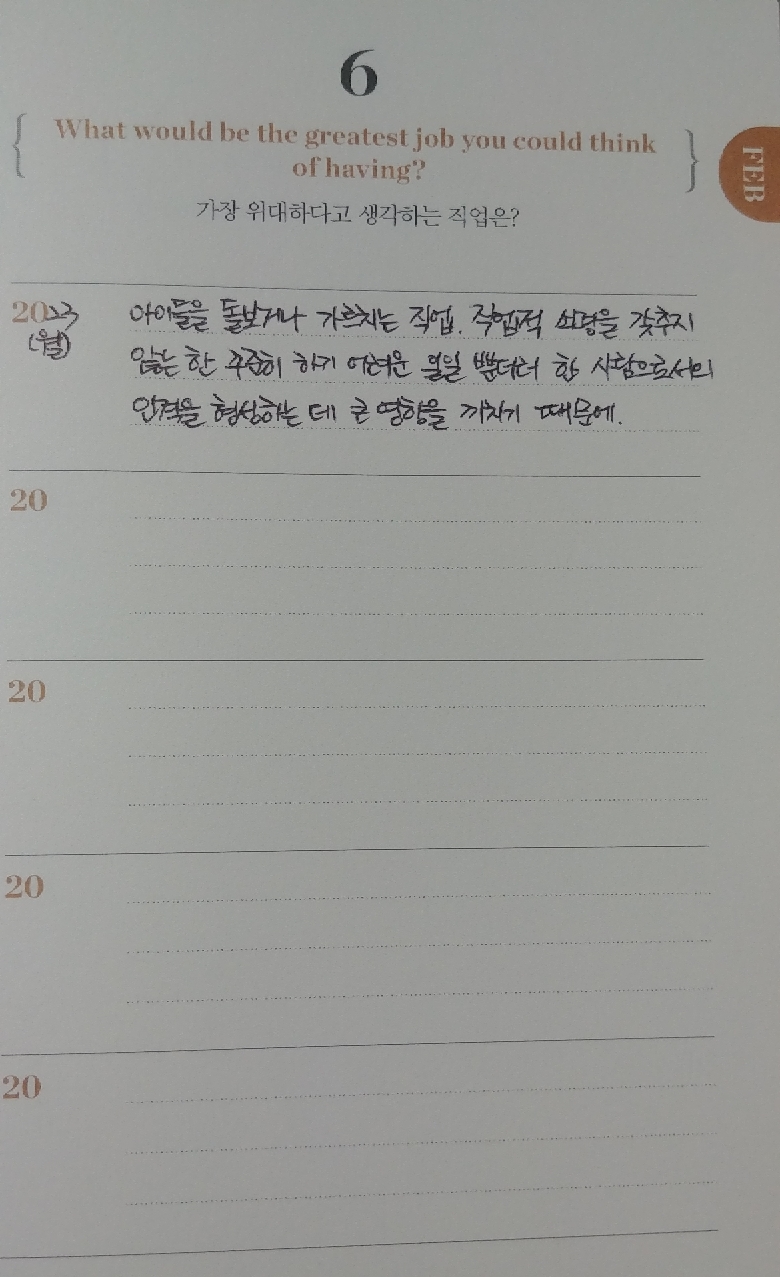 6
What would be the greatest job you could think
of having?
가장 위대하다고 생각하는 직업은?
FEB
2023
(월)
아이들을 돌보거나 가르치는 직업. 직업적 소명을 갖추지
않는 한 꾸준히 하기 어려운 일일 뿐더러 한 사람으로서의
인격을 형성하는 데 큰 영향을 끼치기 때문에.
20
20
20
20